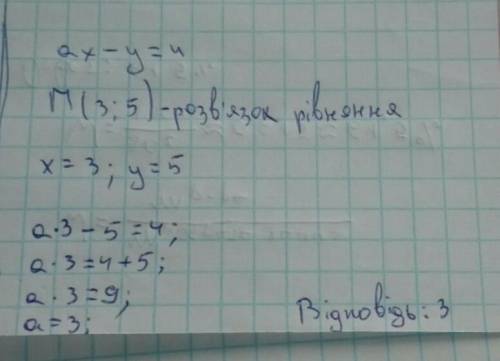 ax - y = 4
М(3; 5) - розв'язок рівняння
x = 3; y = 5
a·3 - 5 = 4;
a·3 = 4 + 5;
a·3 = 9;
a = 3;
Відповідь: 3